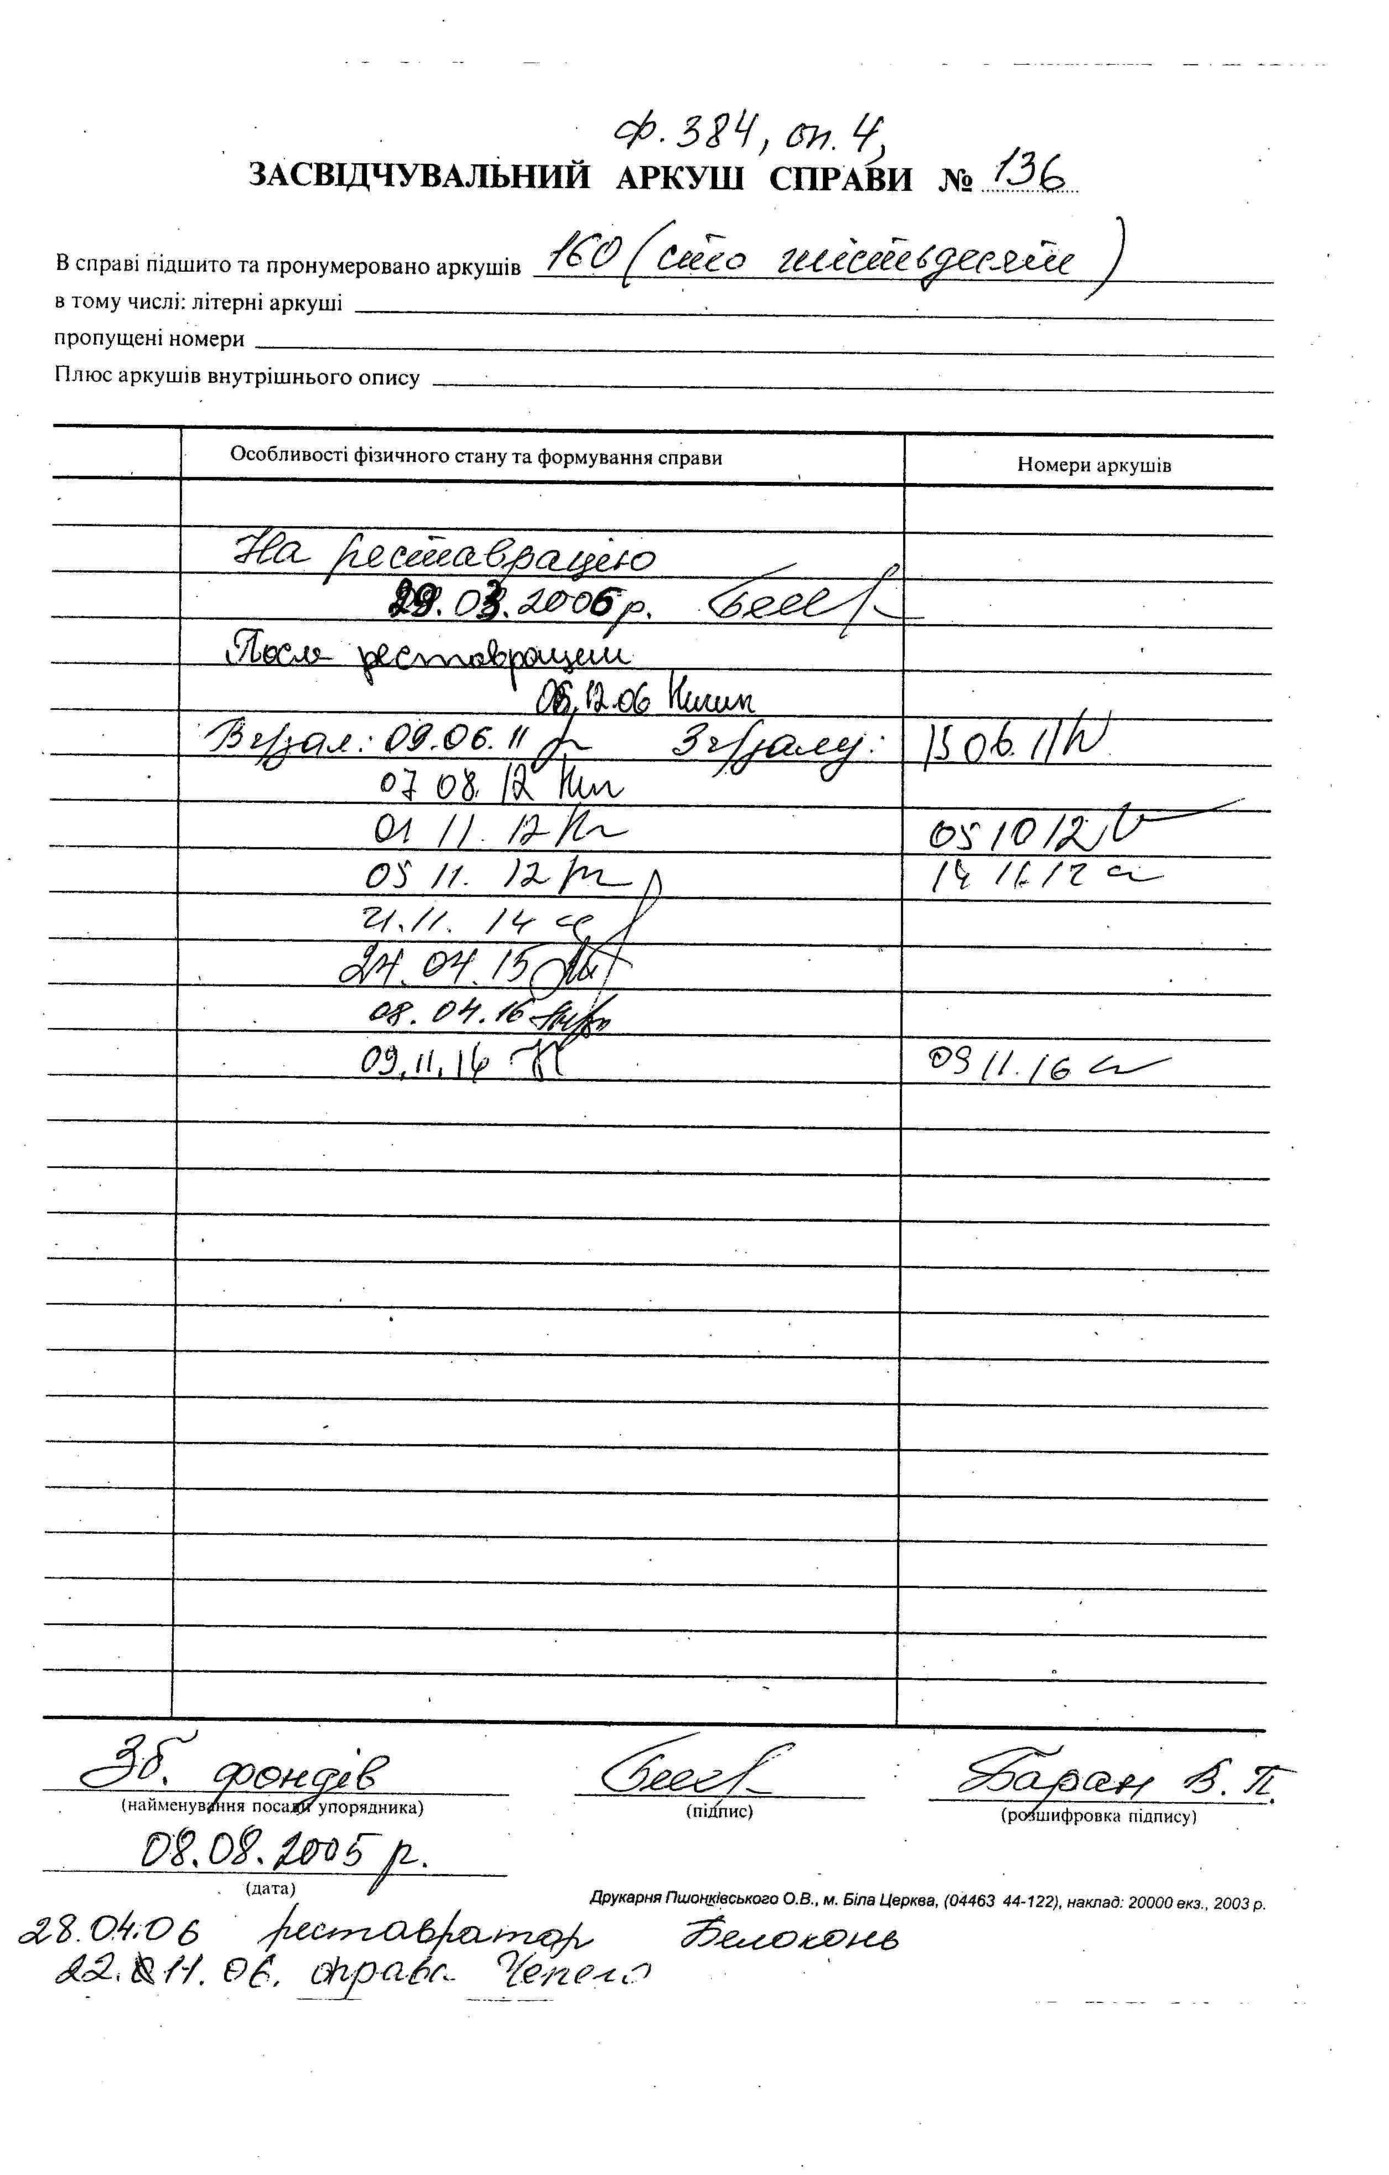 ф. 384, оп. 4,
ЗАСВІДЧУВАЛЬНИЙ АРКУШ СПРАВИ № 136
В справі підшито та пронумеровано аркушів 160 (сто шістьдесят)
в тому числі: літерні аркуші
пропущені номери
Плюс аркушів внутрішнього опису
Особливості фізичного стану та формування справи Номери аркушів
На реставрацію
29.03.2006 р.
После реставрации
05.12.06
В ч/зал.: 09.06.11 З ч/залу: 15 06. 11
07 08. 12
01 11. 12 05 10 12
05 11. 12 14 11.12
21.11. 14
24.04.15
08.04.16
09.11.16 09 11.16
Зб. фондів Баран В. П.
(найменування посади упорядника) (підпис) (розшифровка підпису)
08.08.2005 р.
(дата)
Друкарня Пшонківського О.В., м. Біла Церква, (04463 44-122), наклад: 20000 екз., 2003 р.
28.04.06 реставратор Белоконь
22. 11. 06. оправа Чепель